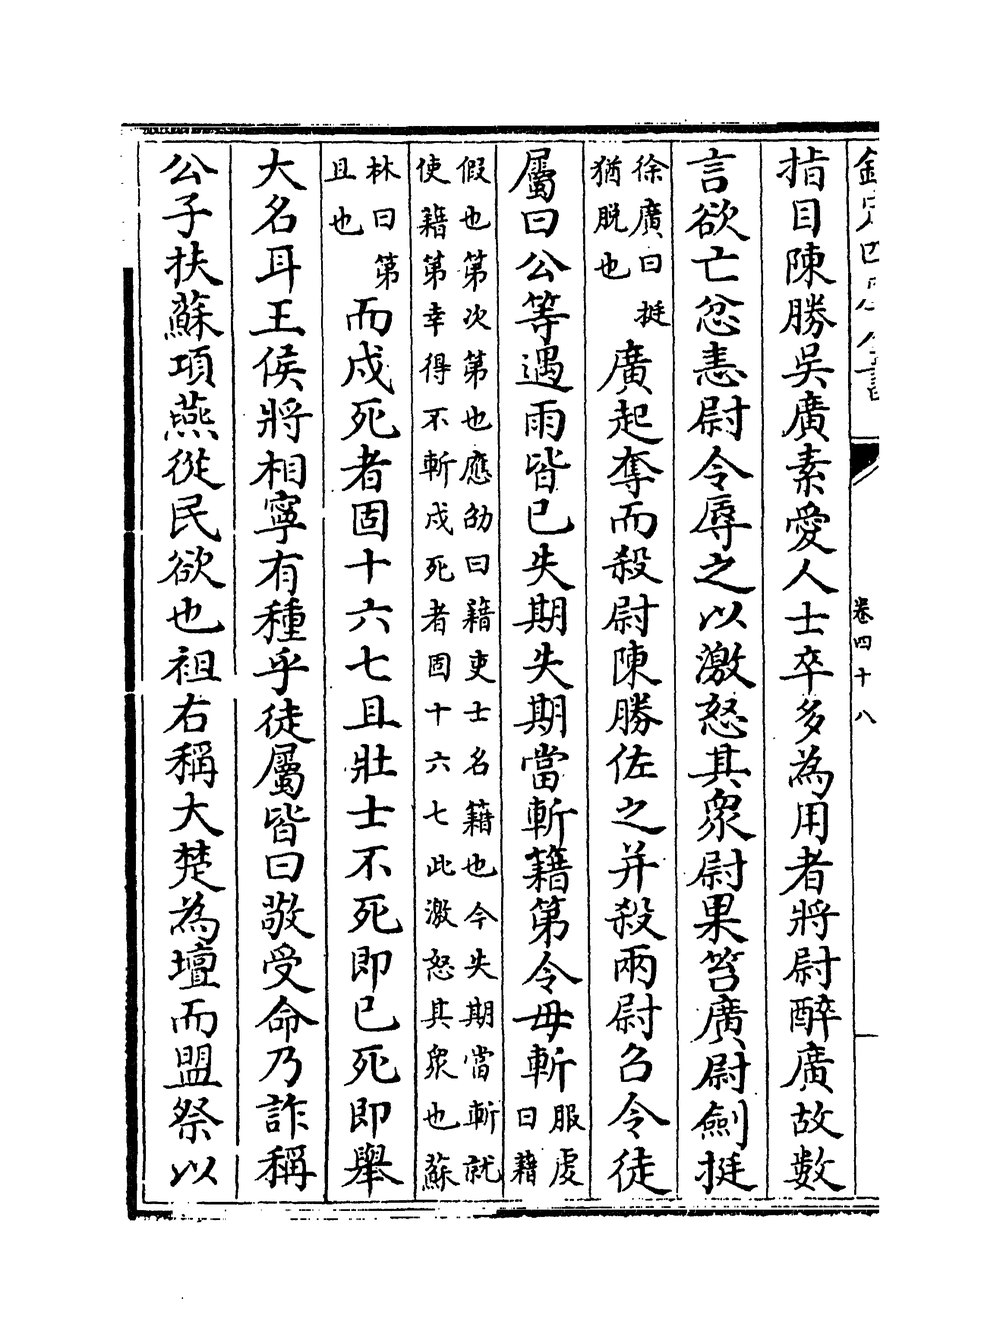 欽定四庫全書
卷四十八
指目陳勝吳廣素愛人士卒多為用者將尉醉廣故數
言欲亡忿恚尉令辱之以激怒其衆尉果笞廣尉劍挺
徐廣曰挺
猶脫也
廣起奪而殺尉陳勝佐之并殺兩尉召令徒
屬曰公等遇雨皆已失期失期當斬籍第令毋斬
服虔
曰籍
假也第次第也應劭曰籍吏士名籍也今失期當斬就
使籍第幸得不斬戍死者固十六七此激怒其衆也蘇
林曰第
且也
而戍死者固十六七且壯士不死即已死即舉
大名耳王侯將相寧有種乎徒屬皆曰敬受命乃詐稱
公子扶蘇項燕從民欲也袒右稱大楚為壇而盟祭以